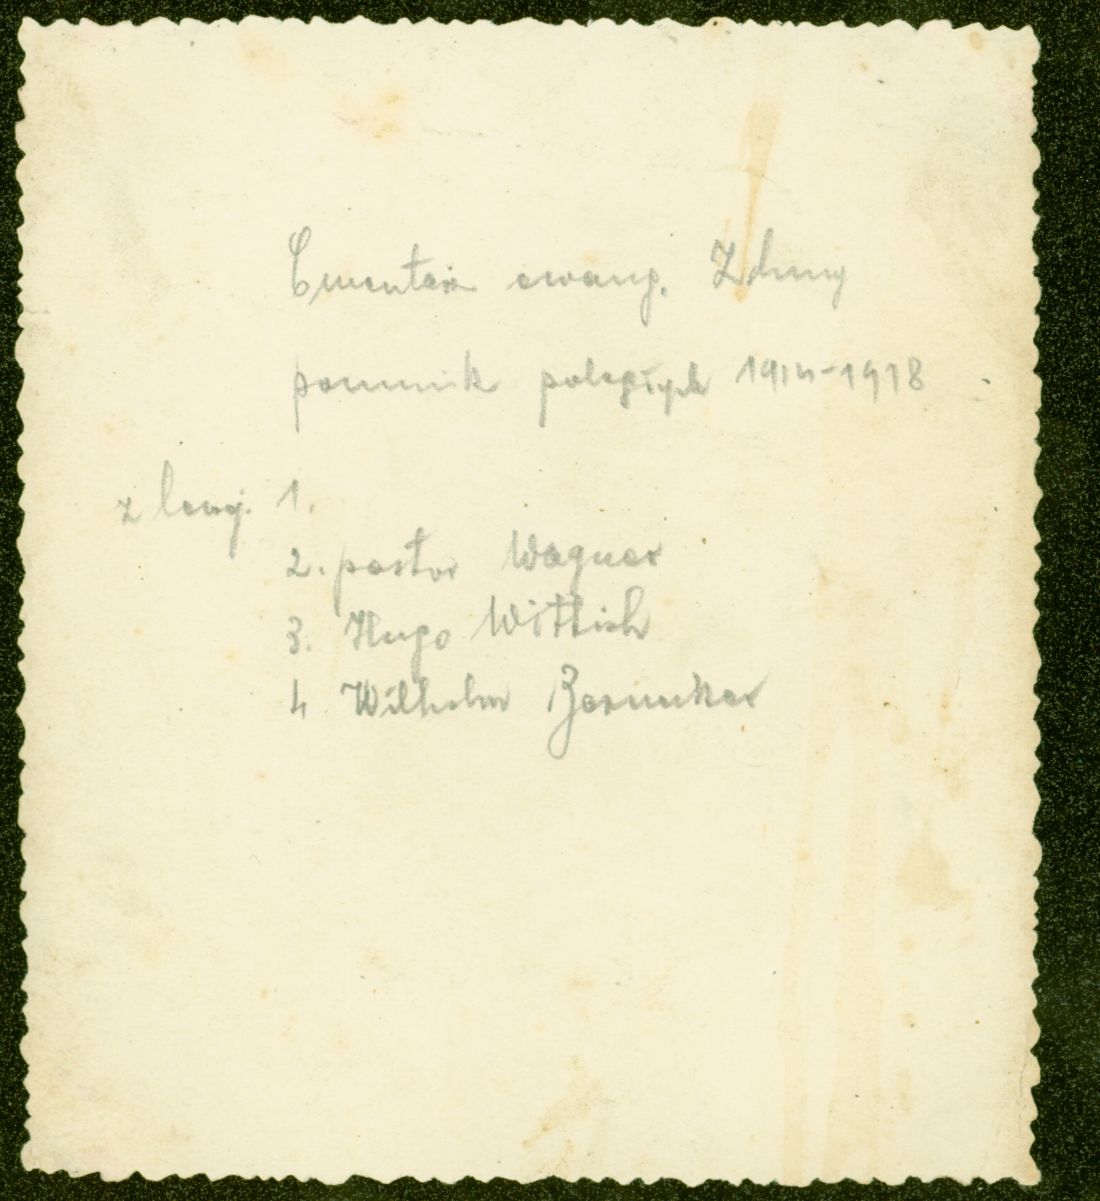 Cmentarz ewang. Zduny
pomnik poległych 1914-1918
z lewej. 1.
2. pastor Wagner
3. Hugo Wittich
4 Wilhelm